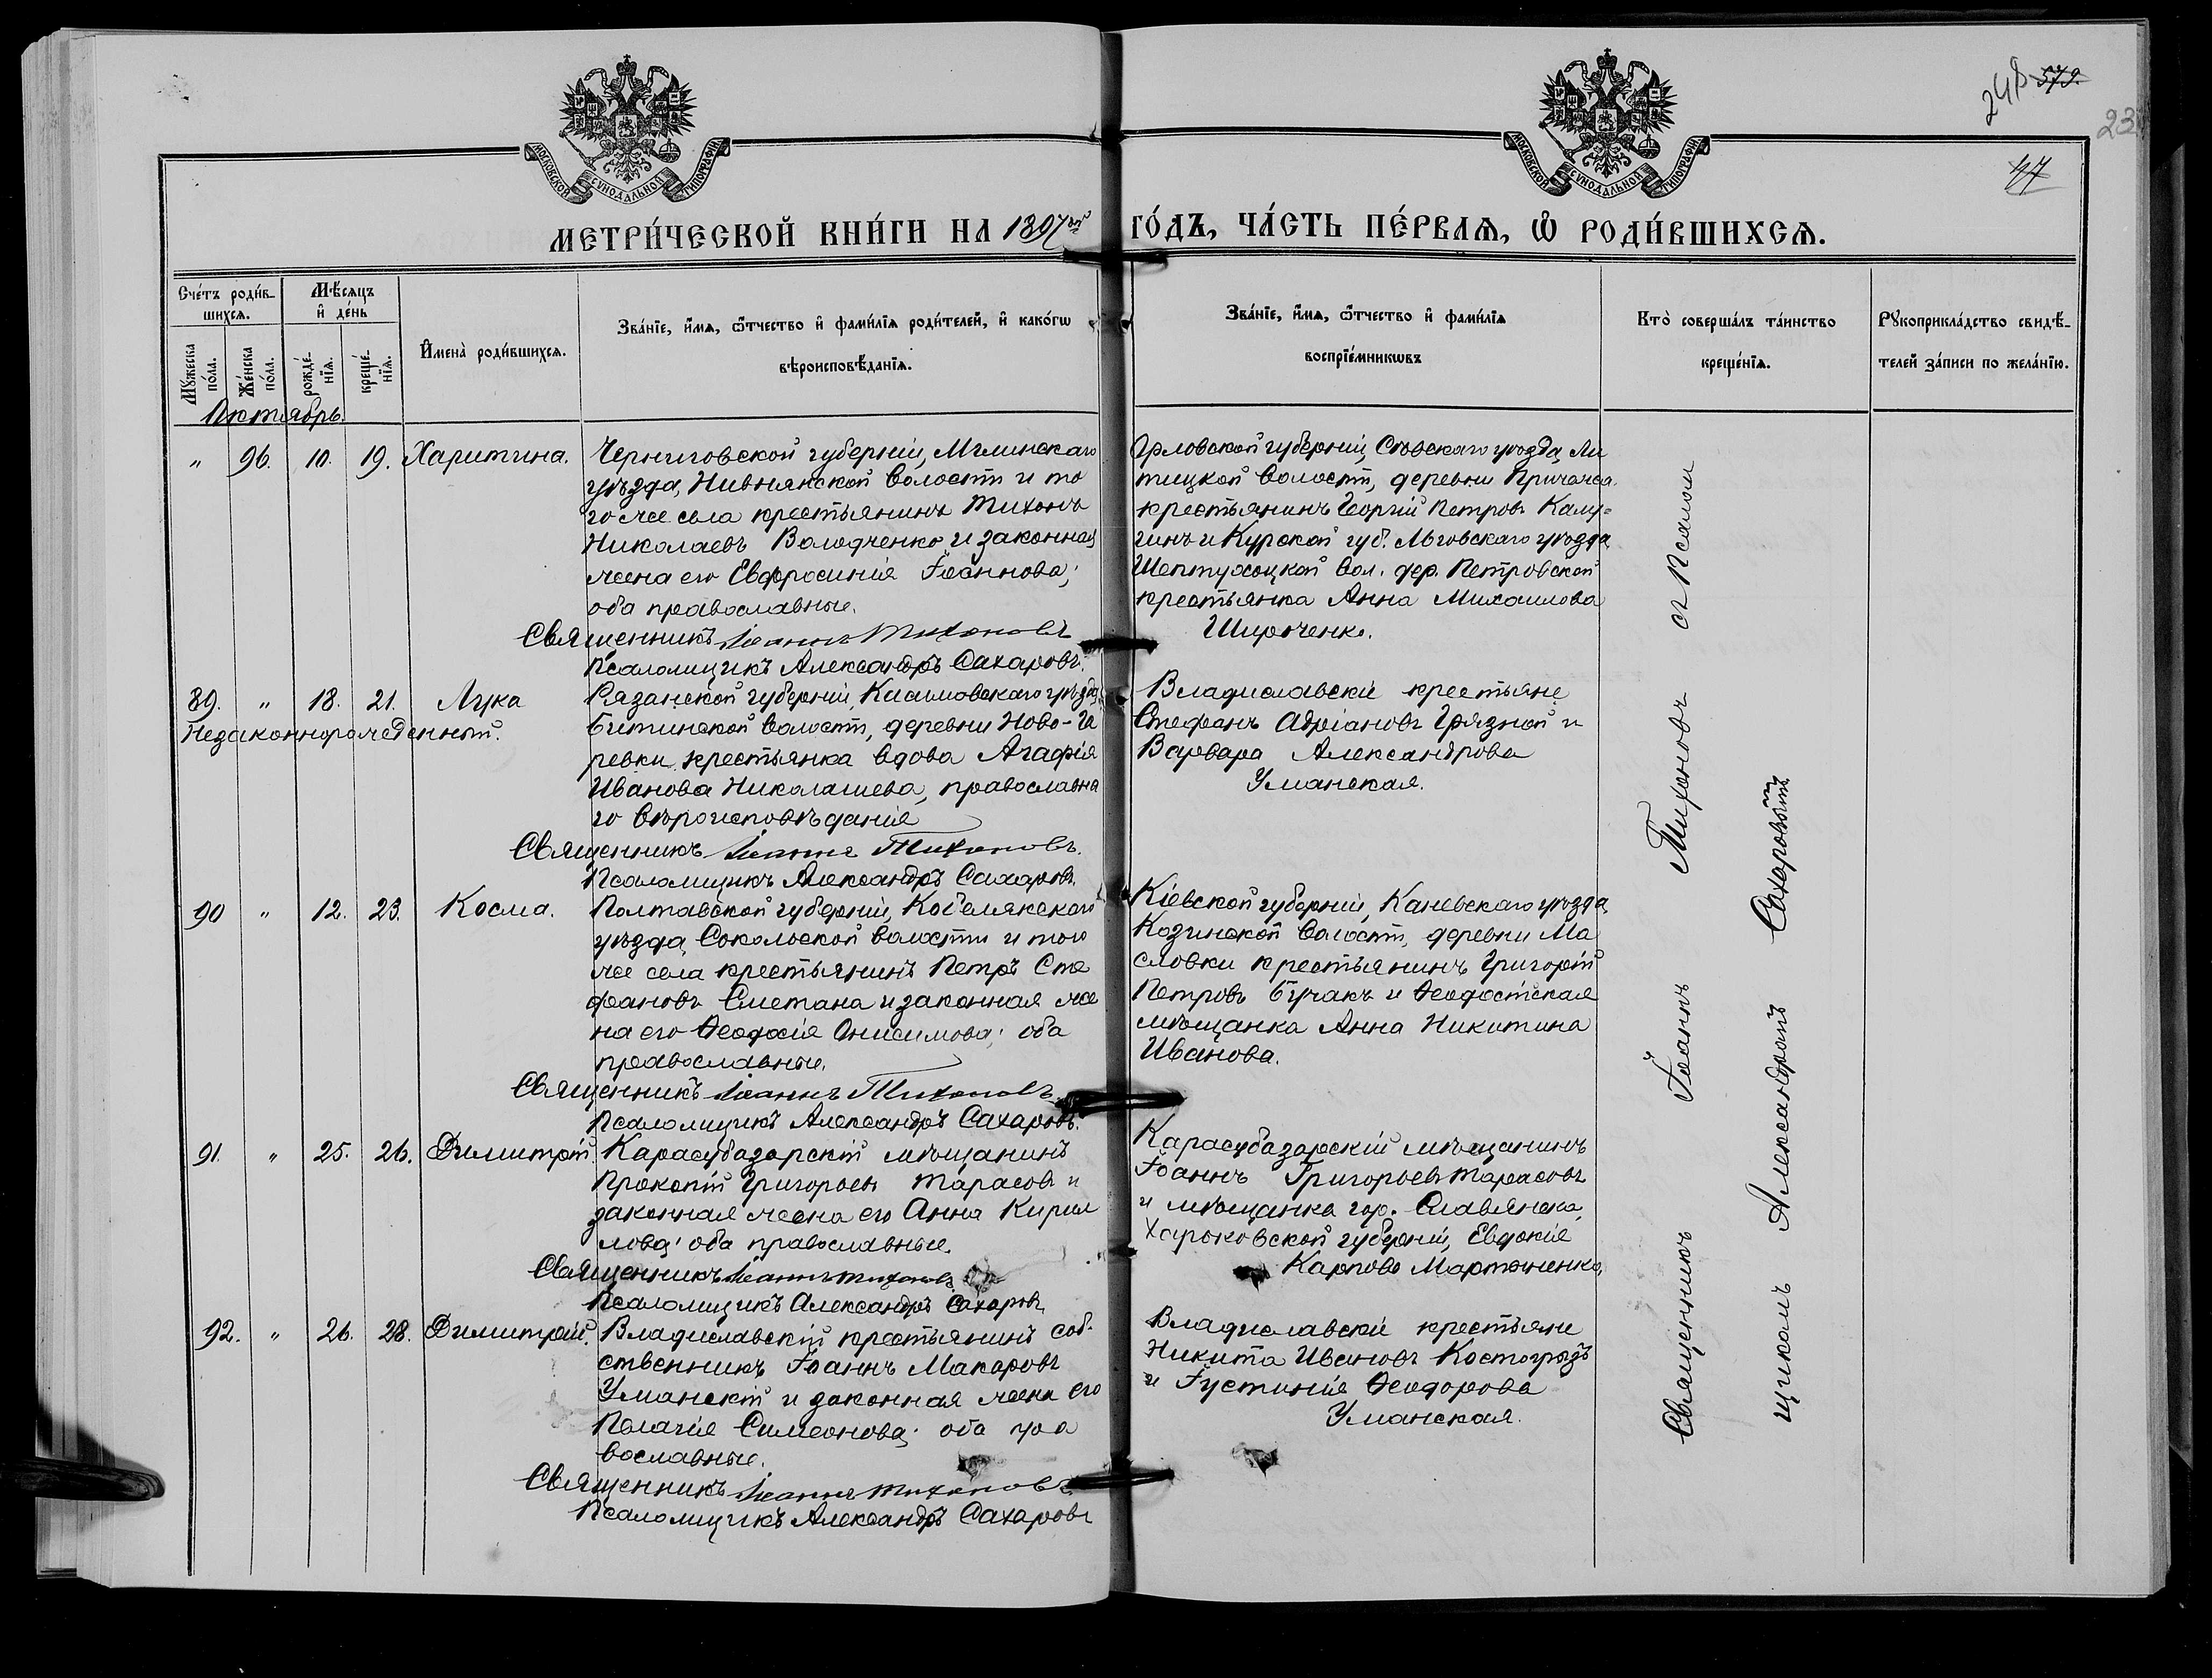 248 579.
23
47
МОСКОВСКОЙ СѴНОДАЛЬНОЙ ТИПОГРАФІИ
МОСКОВСКОЙ СѴНОДАЛЬНОЙ ТИПОГРАФІИ
МЕТРИ́ЧЕСКОЙ КНИ́ГИ НА 1897ой ГО́ДЪ, ЧА́СТЬ ПЕ́РВАѦ, Ѡ РОДИ́ВШИХСѦ.
Сче́тъ роди́в-
шихсѧ.
Мѣ́сѧцъ
и де́нь
Мꙋ́жеска по́ла.
Же́нска по́ла.
рожде́-
нїѧ.
креще́-
нїѧ.
Имена̀ роди́вшихсѧ.
Зва́нїе, и́мѧ, ѻ́тчество и фами́лїѧ роди́телей, и како́гѡ
вѣроисповѣ́данїѧ.
Зва́нїе, и́мѧ, ѻ́тчество и фами́лїѧ
воспрїе́мникѡвъ
Кто̀ соверша́лъ та́инство
креще́нїѧ.
Рꙋкоприкла́дство свидѣ́-
телей за́писи по жела́нїю.
Октябрь.
" 96. 10. 19. Харитина.
Черниговской губерніи, Мглинскаго
уѣзда, Нивнянской волости и то
го же села крестьянинъ Тихонъ
Николаевъ Володченко и законная
жена его Евфросинія Іоаннова;
оба православные.
Священникъ Іоаннъ Тихоновъ
Псаломщикъ Александръ Сахаровъ.
Орловской губерніи, Сѣвскаго уѣзда, Ли
тицкой волости, деревни
крестьянинъ Георгій Петровъ Калу-
гинъ и Курской губ. Льговскаго уѣзда
Шептухоцкой вол. дер. Петровской
крестьянка Анна Михаилова
Широченко.
89. " 18. 21. Лука
Незаконнорожденный.
Рязанской губерніи, Касимовскаго уѣзда,
Битинской волости, деревни Ново-Де
ревки крестьянка вдова Агафія
Иванова Николашева, православна
го вѣроисповѣданія
Священникъ Іоаннъ Тихоновъ.
Псаломщикъ Александръ Сахаровъ.
Владиславскіе крестьяне
Стефанъ Адріановъ Грязной и
Варвара Александрова
Уманская.
90 " 12. 23. Косма.
Полтавской губерніи, Кобелякскаго
уѣзда, Сокольской волости и того
же села крестьянинъ Петръ Сте
фановъ Сметана и законная же
на его Ѳеодосія Онисимова; оба
православные.
Священникъ Іоаннъ Тихоновъ
Псаломщикъ Александръ Сахаровъ.
Кіевской губерніи, Каневскаго уѣзда,
Козинской волости, деревни Ма
словки крестьянинъ Григорій
Петровъ Бучакъ и Ѳеодосійская
мѣщанка Анна Никитина
Иванова.
91. " 25. 26. Димитрій.
Карасубазарскій мѣщанинъ
Прокопій Григорьевъ Тарасовъ и
законная жена его Анна Кирил
лова; оба православные.
Священникъ Іоаннъ Тихоновъ
Псаломщикъ Александръ Сахаровъ
Карасубазарскій мѣщанинъ
Іоаннъ Григорьевъ Тарасовъ
и мѣщанка гор. Славянска,
Харьковской губерніи, Евдокія
Карпова Мартыненко,
92. " 26. 28. Димитрій.
Владиславскій крестьянинъ соб-
ственникъ Іоаннъ Макаровъ
Уманскій и законная жена его
Пелагія Симеонова; оба пра
вославные.
Священникъ Іоаннъ Тихоновъ
Псаломщикъ Александръ Сахаровъ
Владиславскіе крестьяне
Никита Ивановъ Костогрызъ
и Іустинія Ѳеодорова
Уманская.
Священникъ Іоаннъ Тихоновъ съ Псалом
щикомъ Александромъ Сахаровымъ